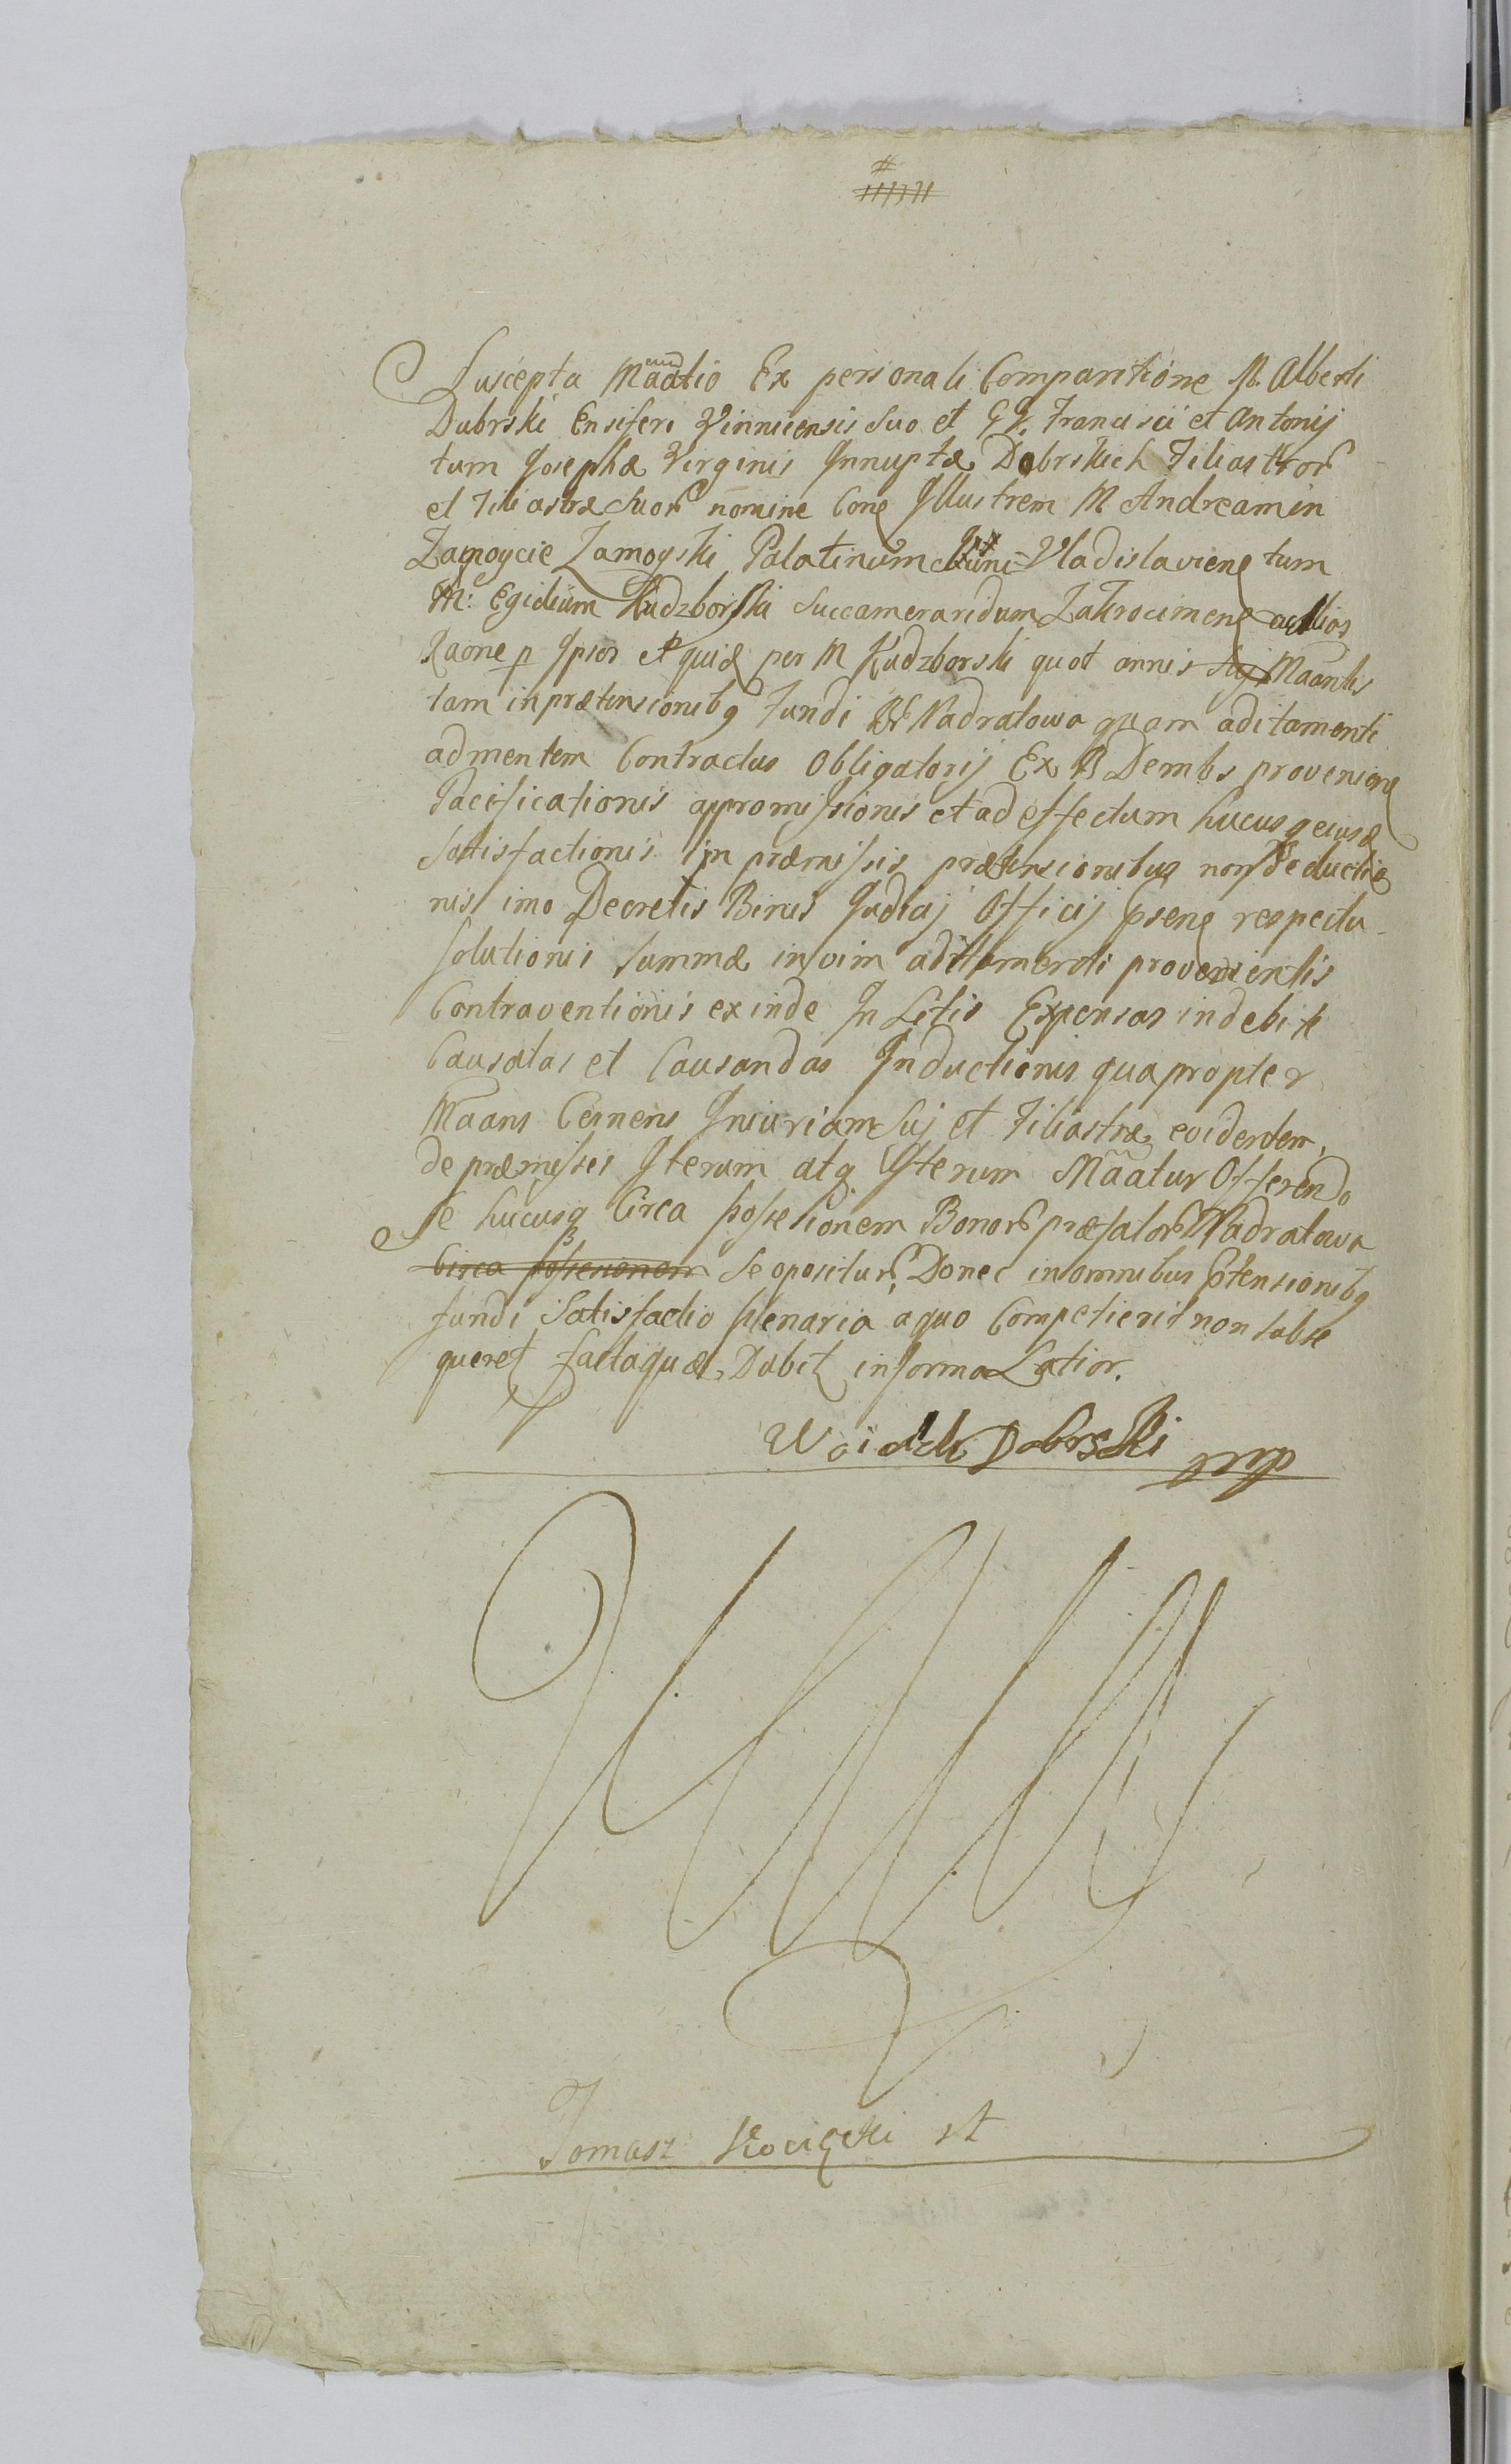 Suscepta Maadtio Ex personali Comparitione M. Alberti
Dubrski Ensiferi Vinnicensis Suo et GG. Francisci et Antonij
tum Josephæ Virginis Innuptæ Dobrskich Filiastror
et Filiastræ Suor nomine Cong Illustrem M Andream in
Zamoycie Zamoyski Palatinum Vladislavieng tum
M: Egidium Kudzborski Succamerarium Zakrocimeng
Raone p Ipsor quid per M Kudzborski quot annis Maantis
tam in prætensionibg Fundi Nadratowa quam aditamenti
ad mentem Contractus Obligatorij Ex B Dembs proveniong
Pacificationis appromissionis et ad effectum hucusq eiusd
Satisfactionis in præmissis prætensionibus non deductio
nis imo Decretis Binis Judicij Officij pseng respectu
solutionis summæ in vim adittamenti provenientis
Contraventionis exinde In Litis Expensas indebite
Causatas et Causandas Inductionis quapropter
Maans Cernens Iniuriam Suj et Filiastræ evidentem,
de præmissis Iterum atq Iterum Maatur Offerendo
se hucusq Circa possesionem Bonor præfator Nadratowa
Circa possesionem se opositur, Donec in omnibus Ptensionibg
fundi Satisfactio plenaria a quo Competierit non subse
queret factaquæ Dabit in forma Latior.
Woiciech Dobrski mp
Tomasz